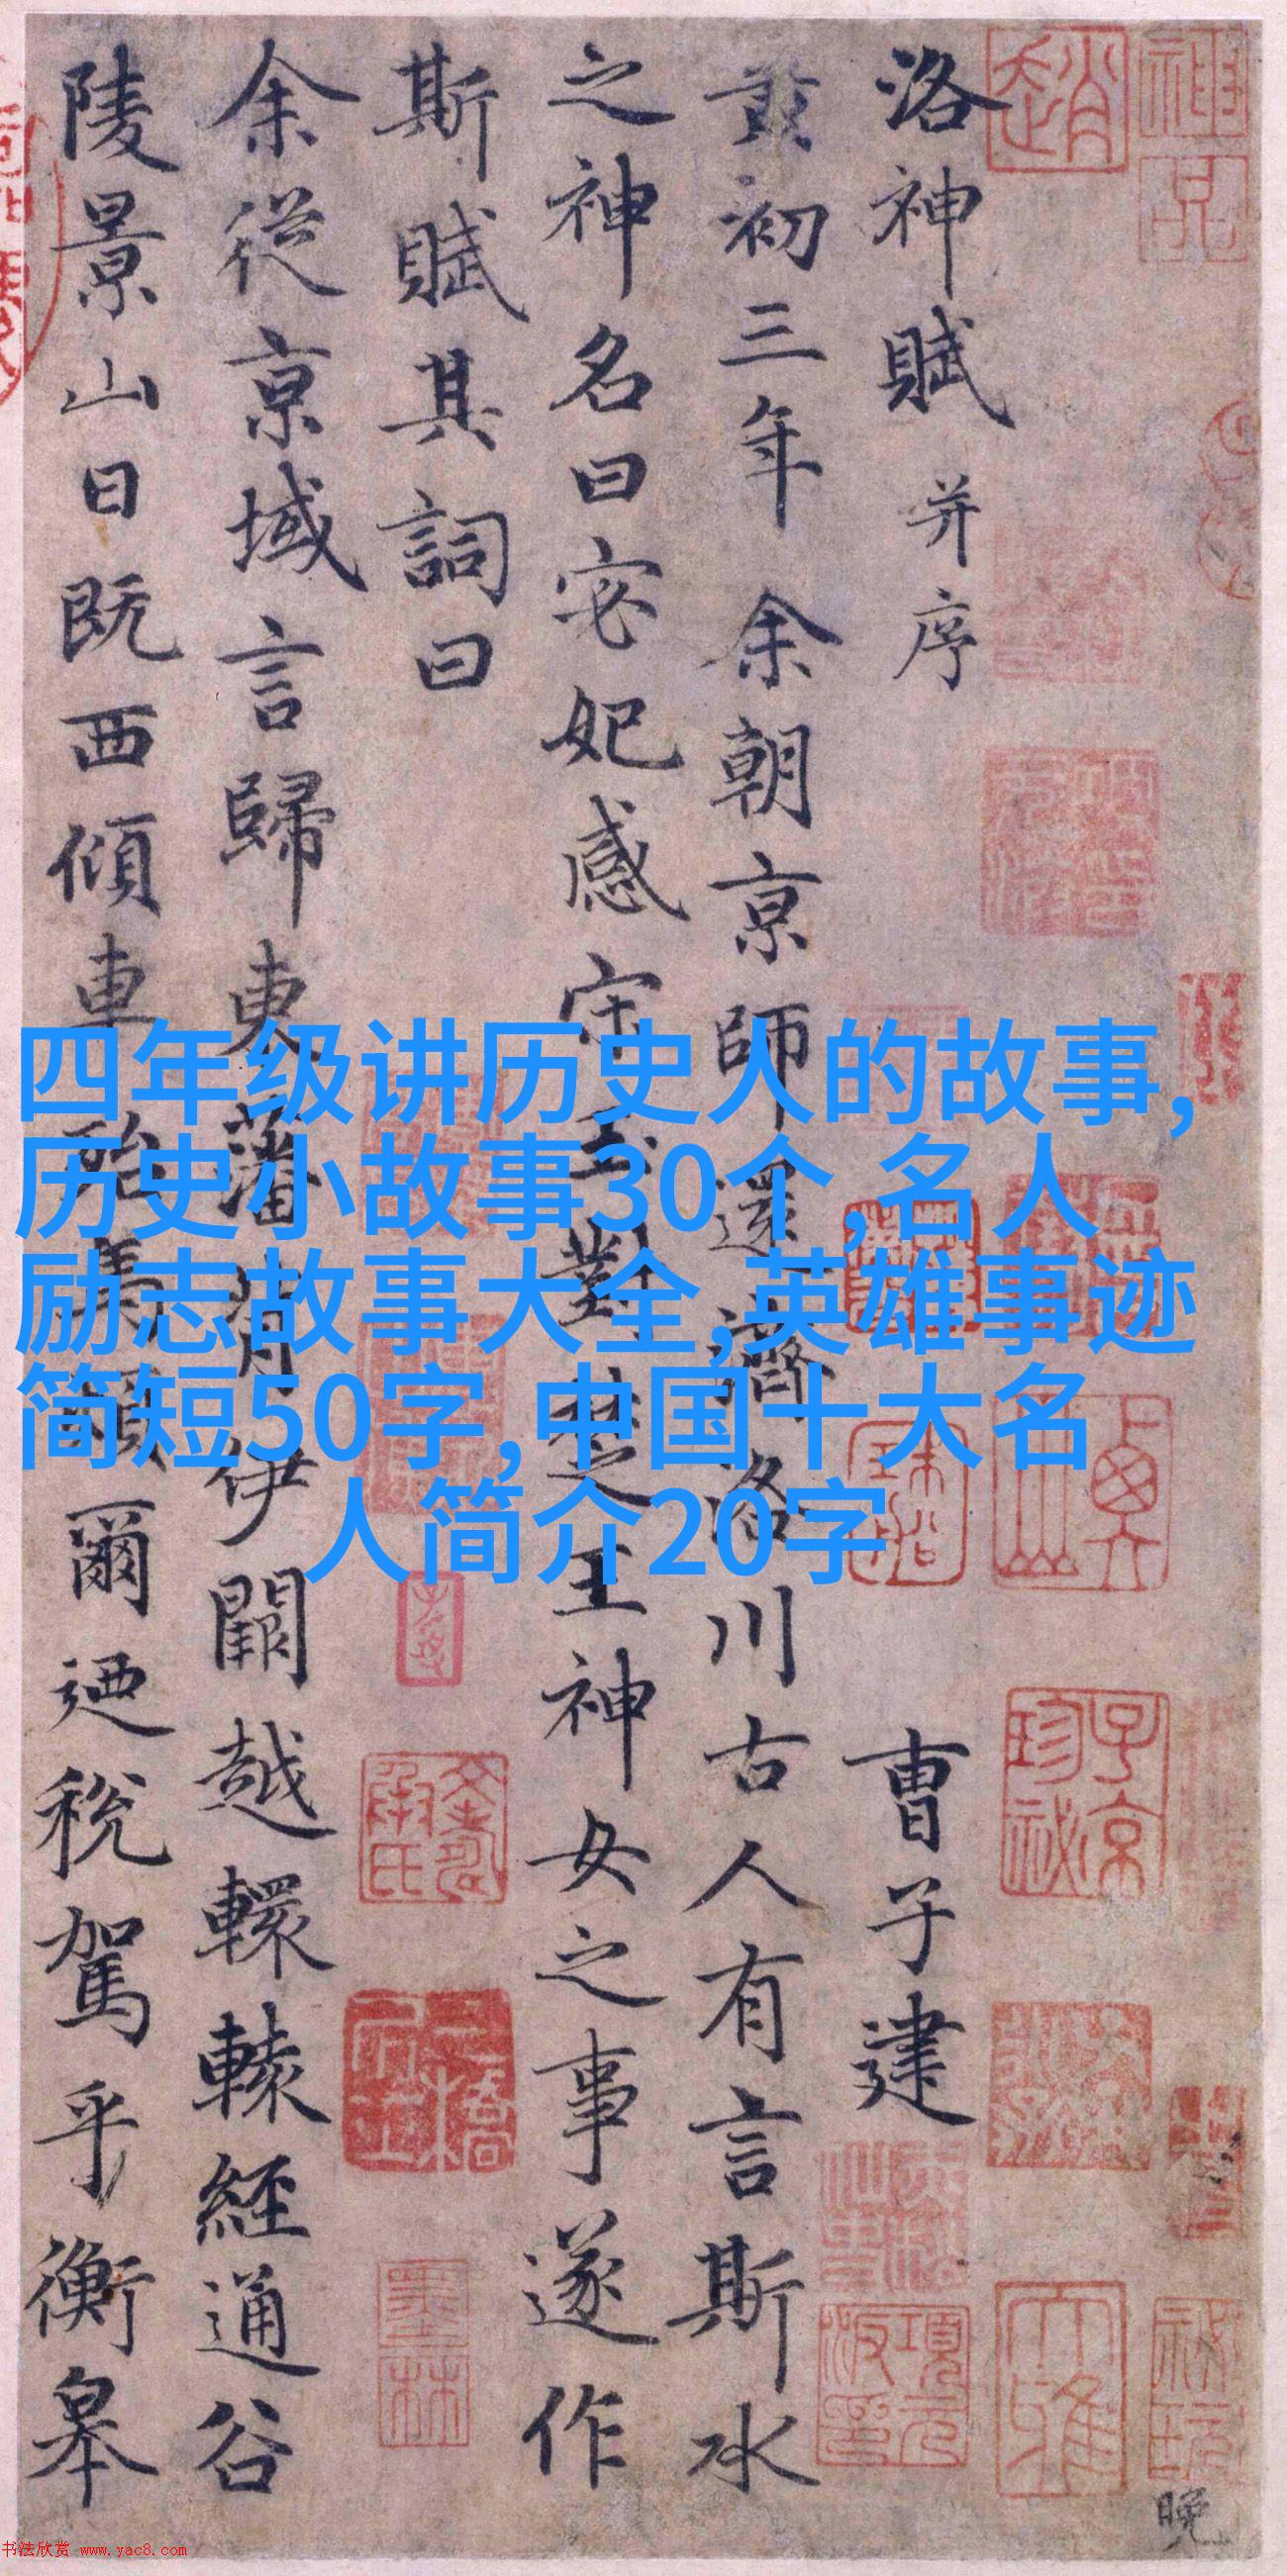 洛神賦 并序 曹子建
黄初三年余朝京師還濟洛川古人有言斯水
之神名曰宓妃感宋玉對楚王神女之事遂作
斯賦其詞曰
余從京域言歸東藩背伊闕越轘轅經通谷
陵景山日既西傾車殆馬煩爾迺稅駕乎衡皋
四年级讲历史人的故事,
历史小故事30个,名人
励志故事大全,英雄事迹
简短50字,中国十大名
人简介20字
趙
子京珍秘
項元汴印
墨林
大雅
晚
书法欣赏 www.yac8.com